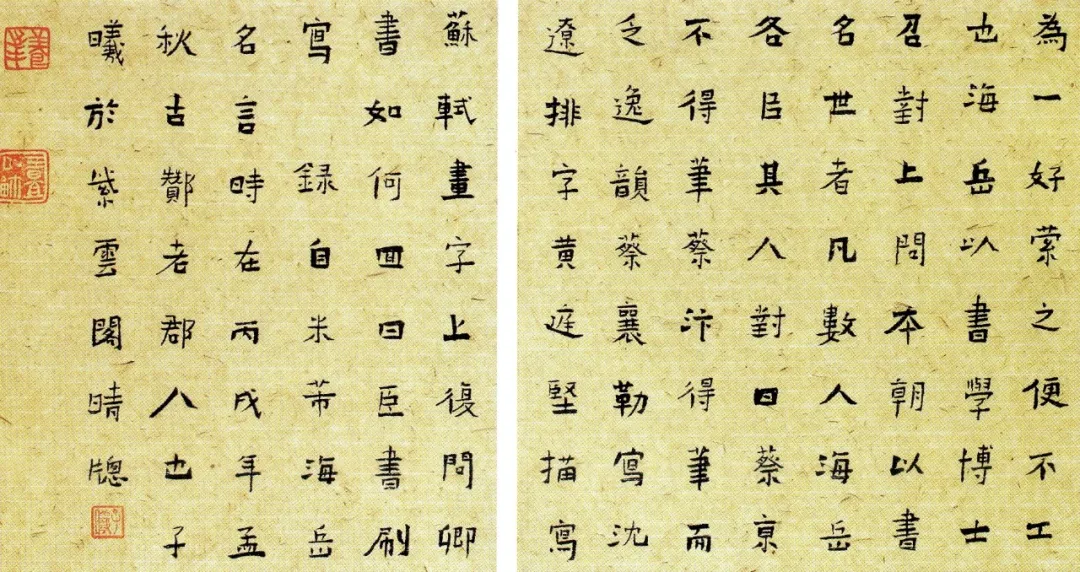 為一好萦之便不工
也海岳以書學博士
召對上問本朝以書
名世者凡數人海岳
各㠯其人對曰蔡京
不得筆蔡汴得筆而
乏逸韻蔡襄勒寫沈
遼排字黄庭堅描寫
蘇軾畫字上復問卿
書如何回曰臣書刷
寫 録自米芾海岳
名言時在丙戌年孟
秋古酇老郡人也子
曦於紫雲閣晴牕